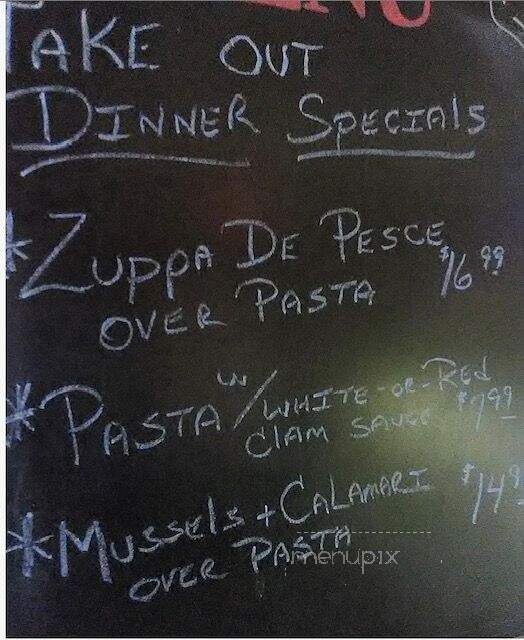 TAKE OUT
DINNER SPECIALS
*ZUPPA DE PESCE $16.99
OVER PASTA
*PASTA W/ WHITE-OR-RED
CLAM SAUCE $7.99
*MUSSELS + CALAMARI $14.9
OVER PASTA
menupix